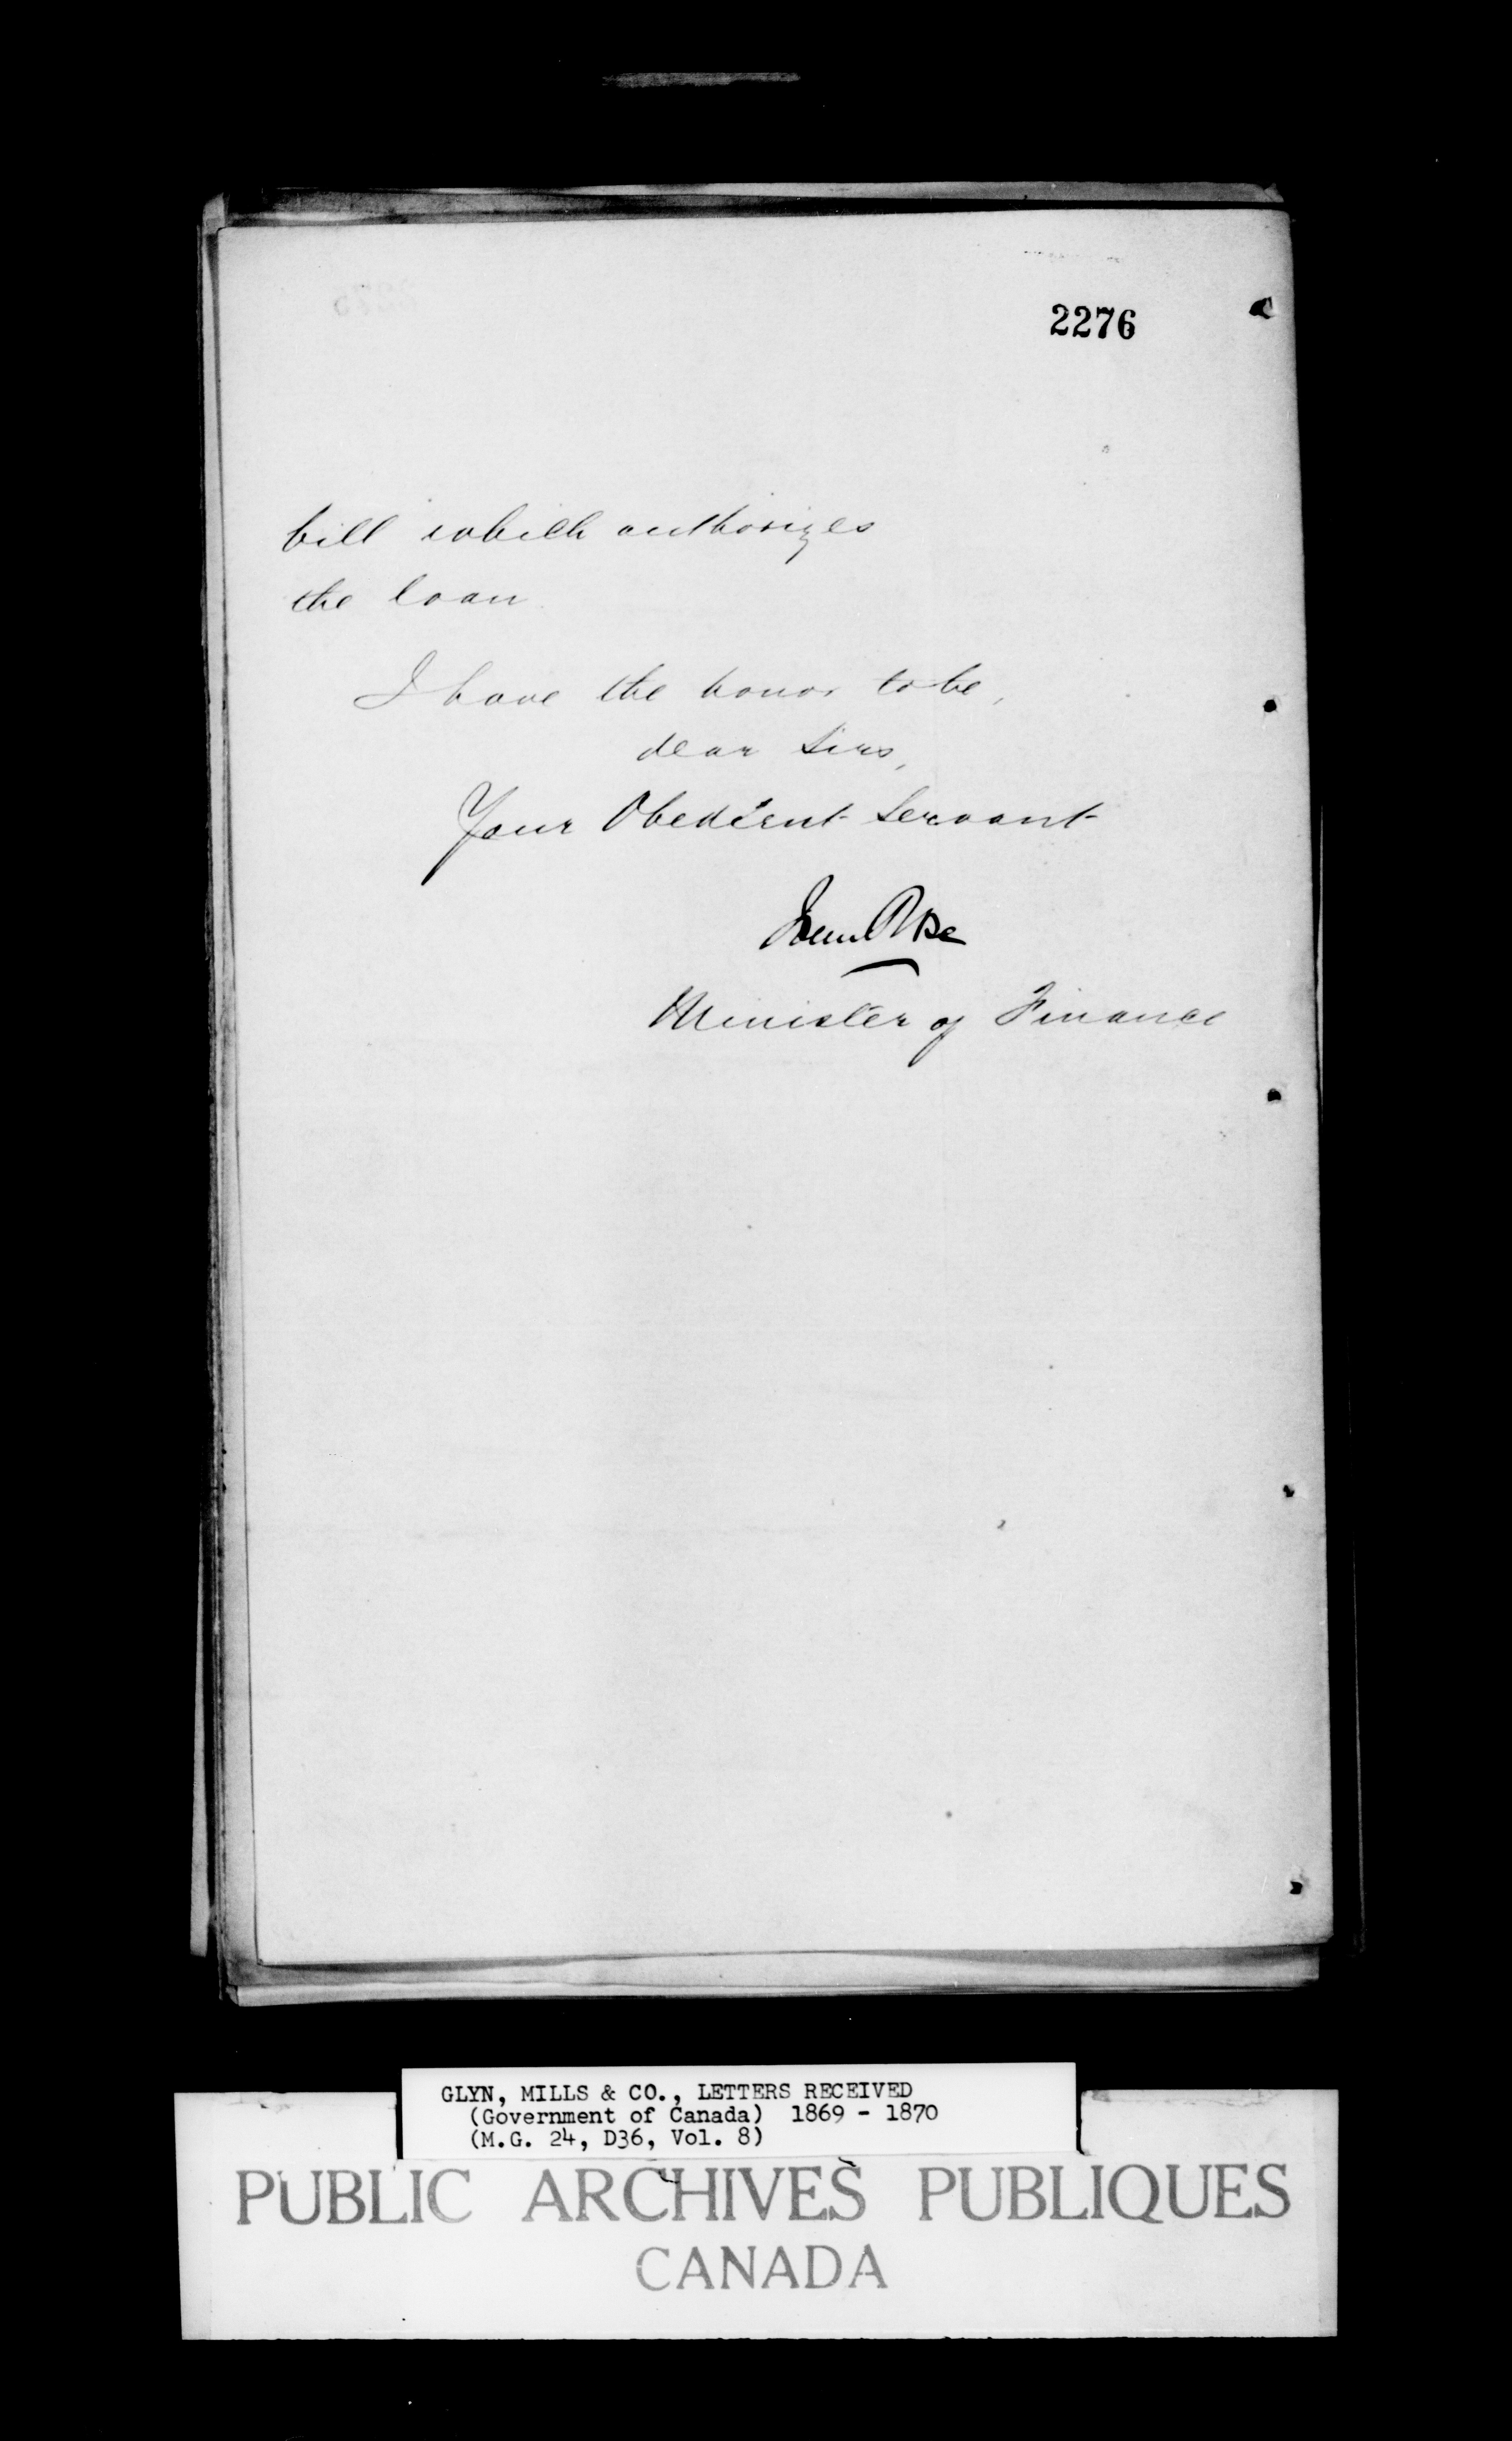 2276
bill which authorizes
the loan
I have the honor to be,
dear Sirs,
Your Obedient Servant
John Rose
Minister of Finance
GLYN, MILLS & CO., LETTERS RECEIVED
(Government of Canada) 1869 - 1870
(M.G. 24, D36, Vol. 8)
PUBLIC ARCHIVES PUBLIQUES
CANADA